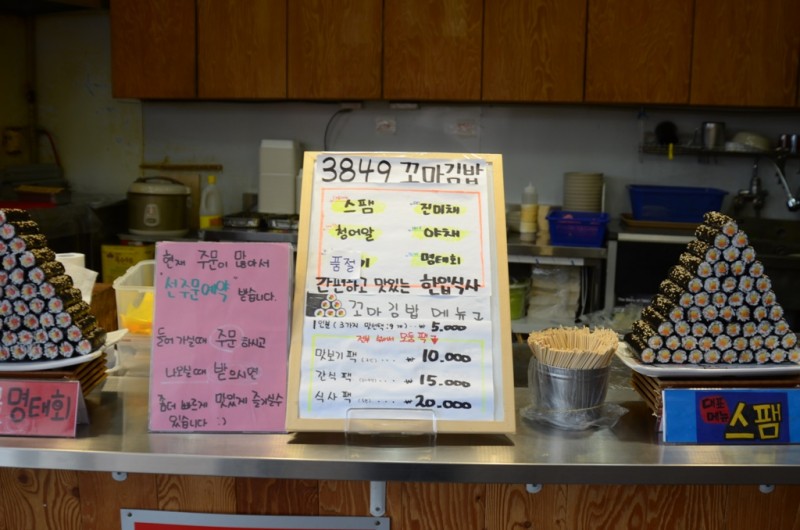 3849 꼬마김밥
스팸 진미채
청어알 야채
품절 명태회
간편하고 맛있는 한입식사
꼬마김밥 메뉴
1인분 5.000
모듬팩
맛보기팩 ₩ 10.000
간식팩 ₩ 15.000
식사팩 ₩ 20.000
현재 주문이 많아서
"선주문예약" 받습니다.
들어가실때 주문하시고
나오실때 받으시면
좀더 빠르게 맛있게 즐기실수
있습니다 :)
명태회
대표
메뉴 스팸